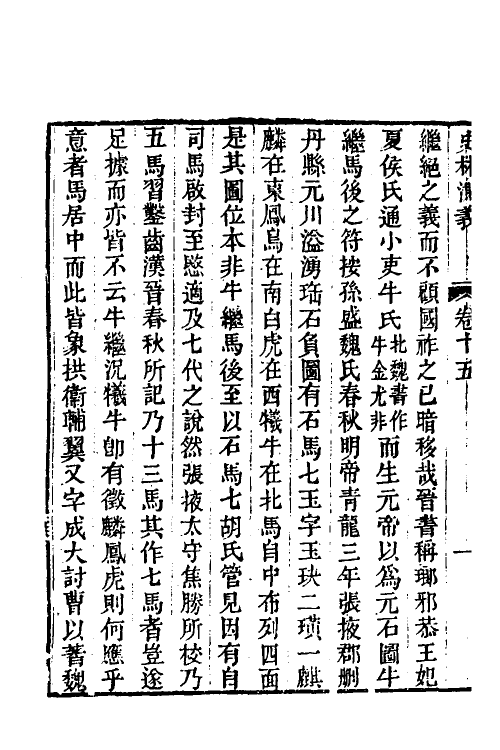 史林測義　卷十五　一
繼絕之義而不顧國祚之已暗移哉晉書稱瑯邪恭王妃
夏侯氏通小吏牛氏北魏書作牛金尤非而生元帝以爲元石圖牛
繼馬後之符按孫盛魏氏春秋明帝青龍三年張掖郡刪
丹縣元川溢湧珤石負圖有石馬七玉字玉玦二璜一麒
麟在東鳳鳥在南白虎在西犧牛在北馬自中布列四面
是其圖位本非牛繼馬後至以石馬七胡氏管見因有自
司馬啟封至愍適及七代之說然張掖太守焦勝所校乃
五馬習鑿齒漢晉春秋所記乃十三馬其作七馬者豈遂
足據而亦皆不云牛繼況犧牛卽有徵麟鳳虎則何應乎
意者馬居中而此皆象拱衛輔翼又字成大討曹以著魏